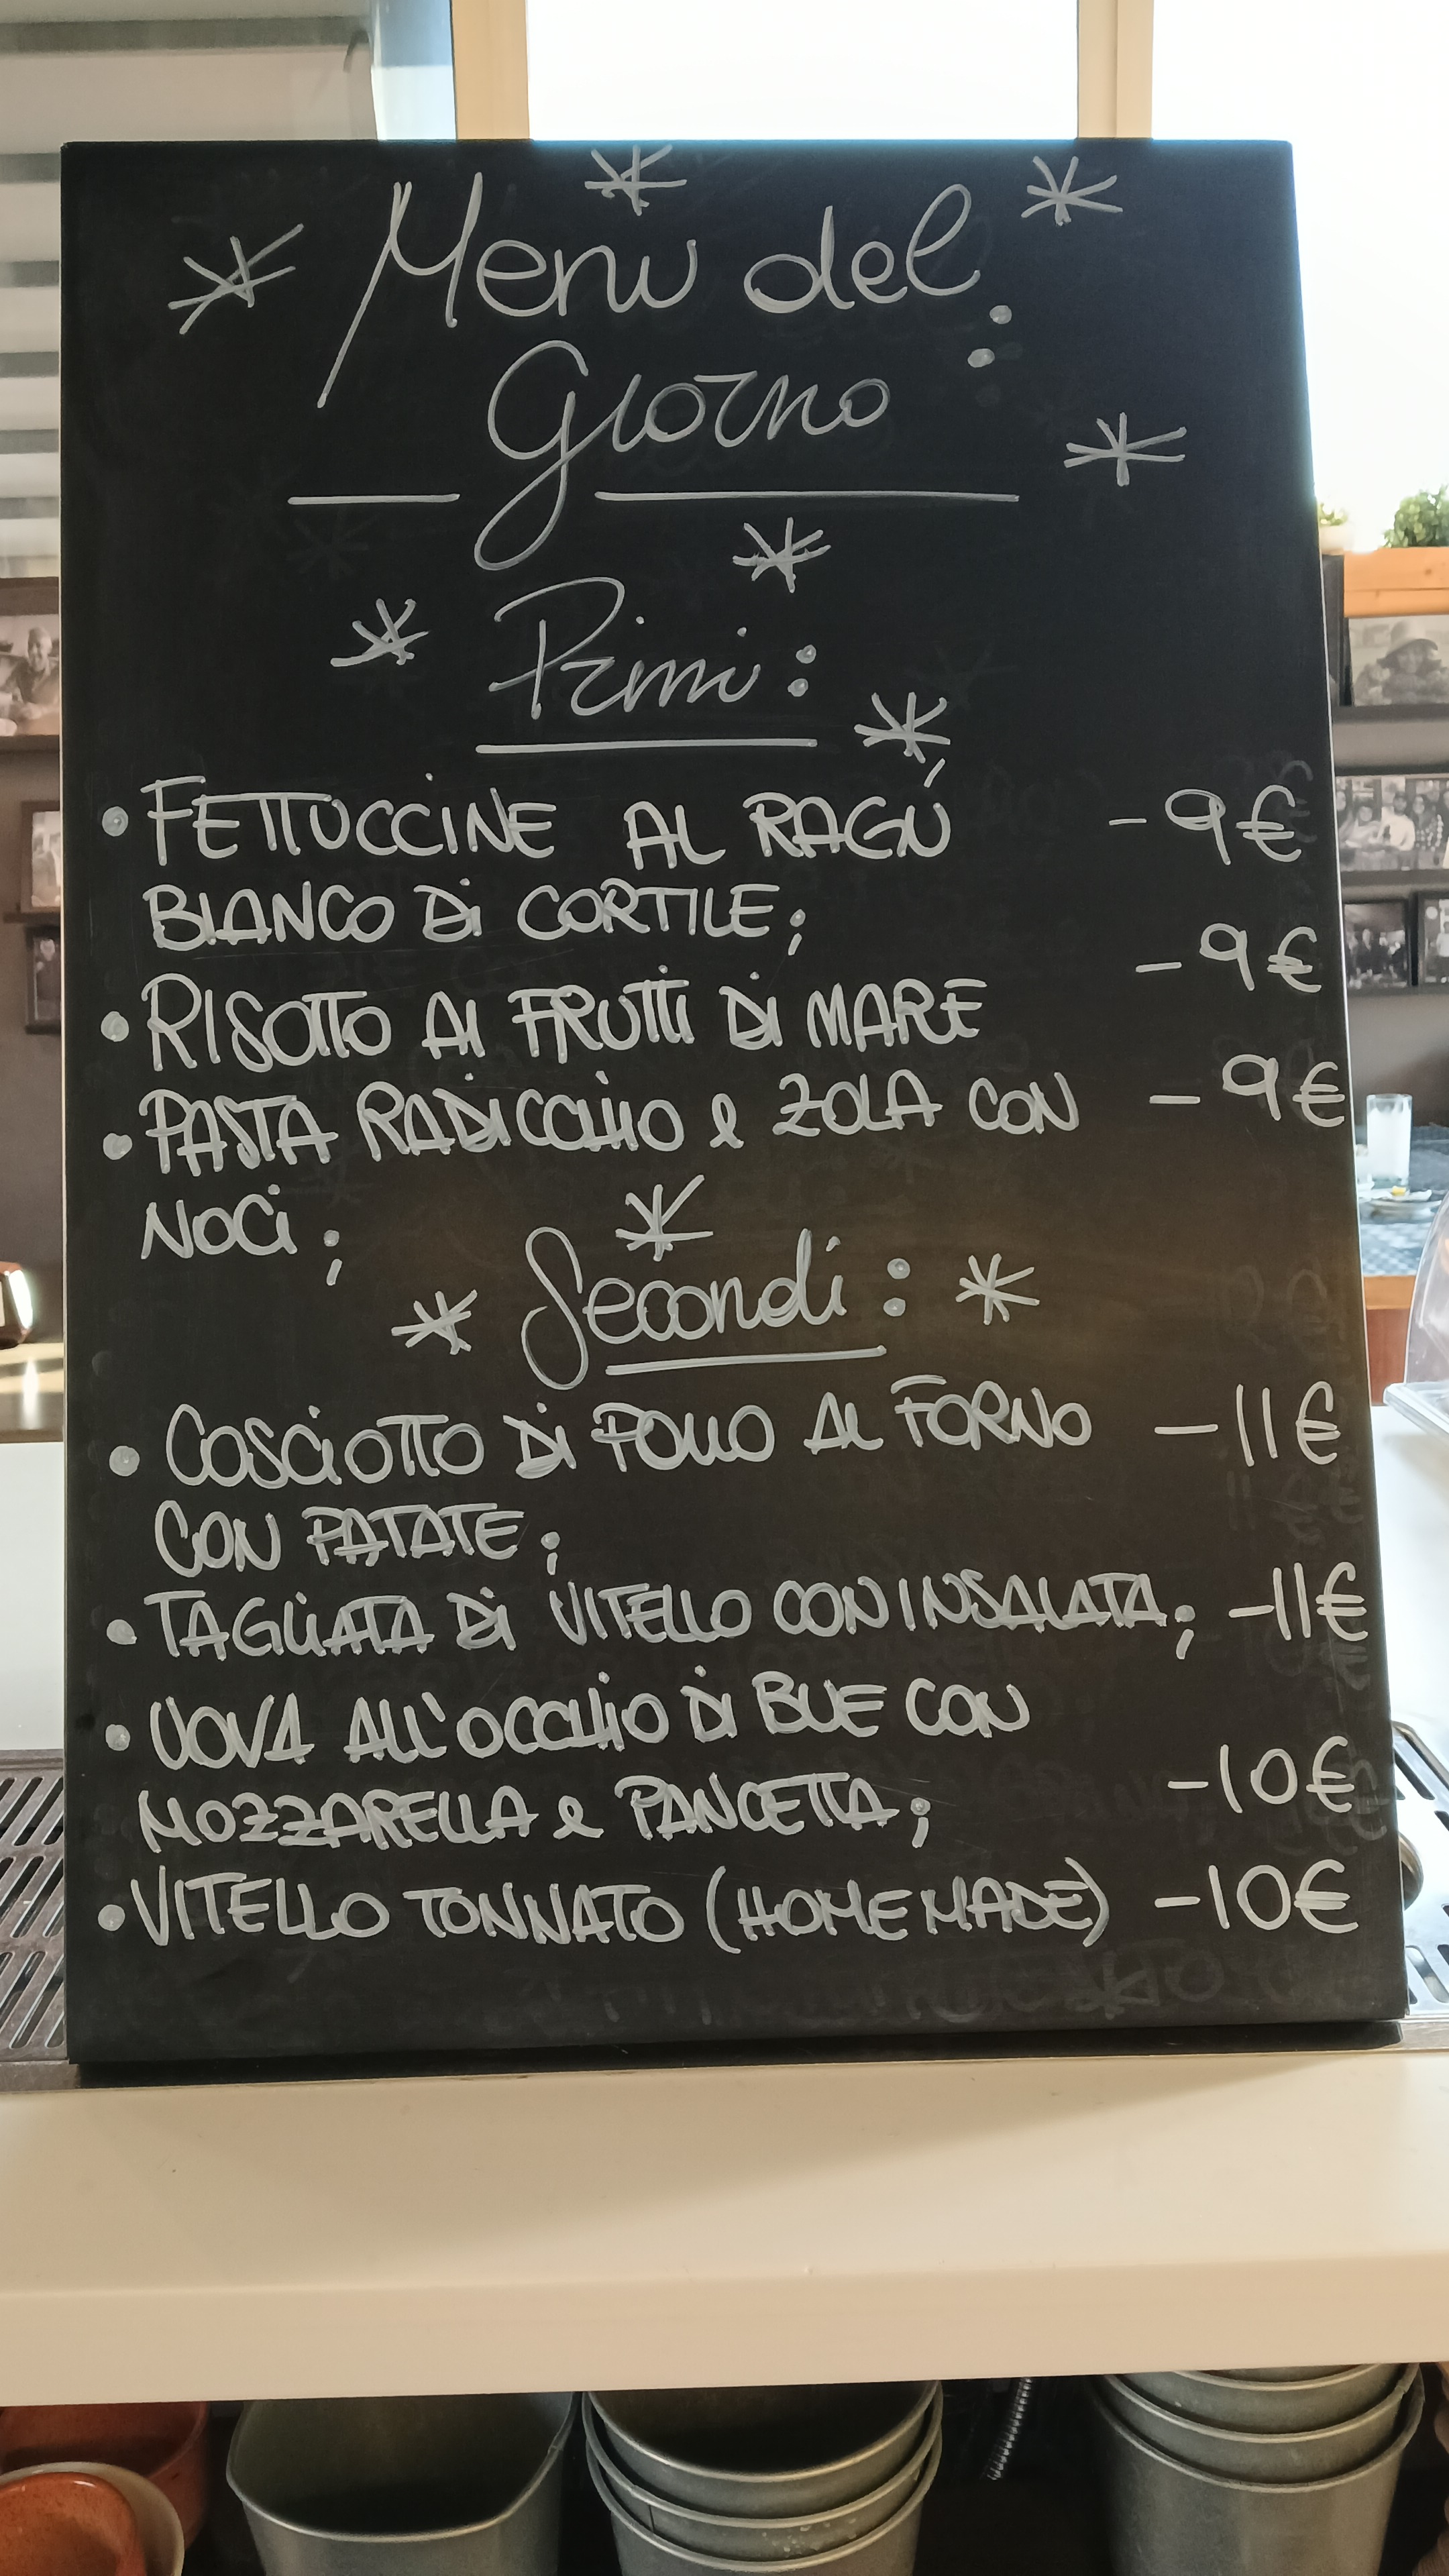 Menu del
Giorno :
Primi :
• FETTUCCINE AL RAGÚ - 9€
BIANCO Di CORTILE;
• RISOTTO AI FRUTTi Di MARE - 9€
• PASTA RADiCCHIO e ZOLA CON - 9€
NOCi ;
Secondi :
• COSCiOTTO Di POLLO AL FORNO - 11€
CON PATATE ;
• TAGLiATA Di VITELLO CON INSALATA; - 11€
• UOVA ALL'OCCHiO Di BUE CON
MOZZARELLA e PANCETTA; - 10€
• VITELLO TONNATO (HOMEMADE) - 10€